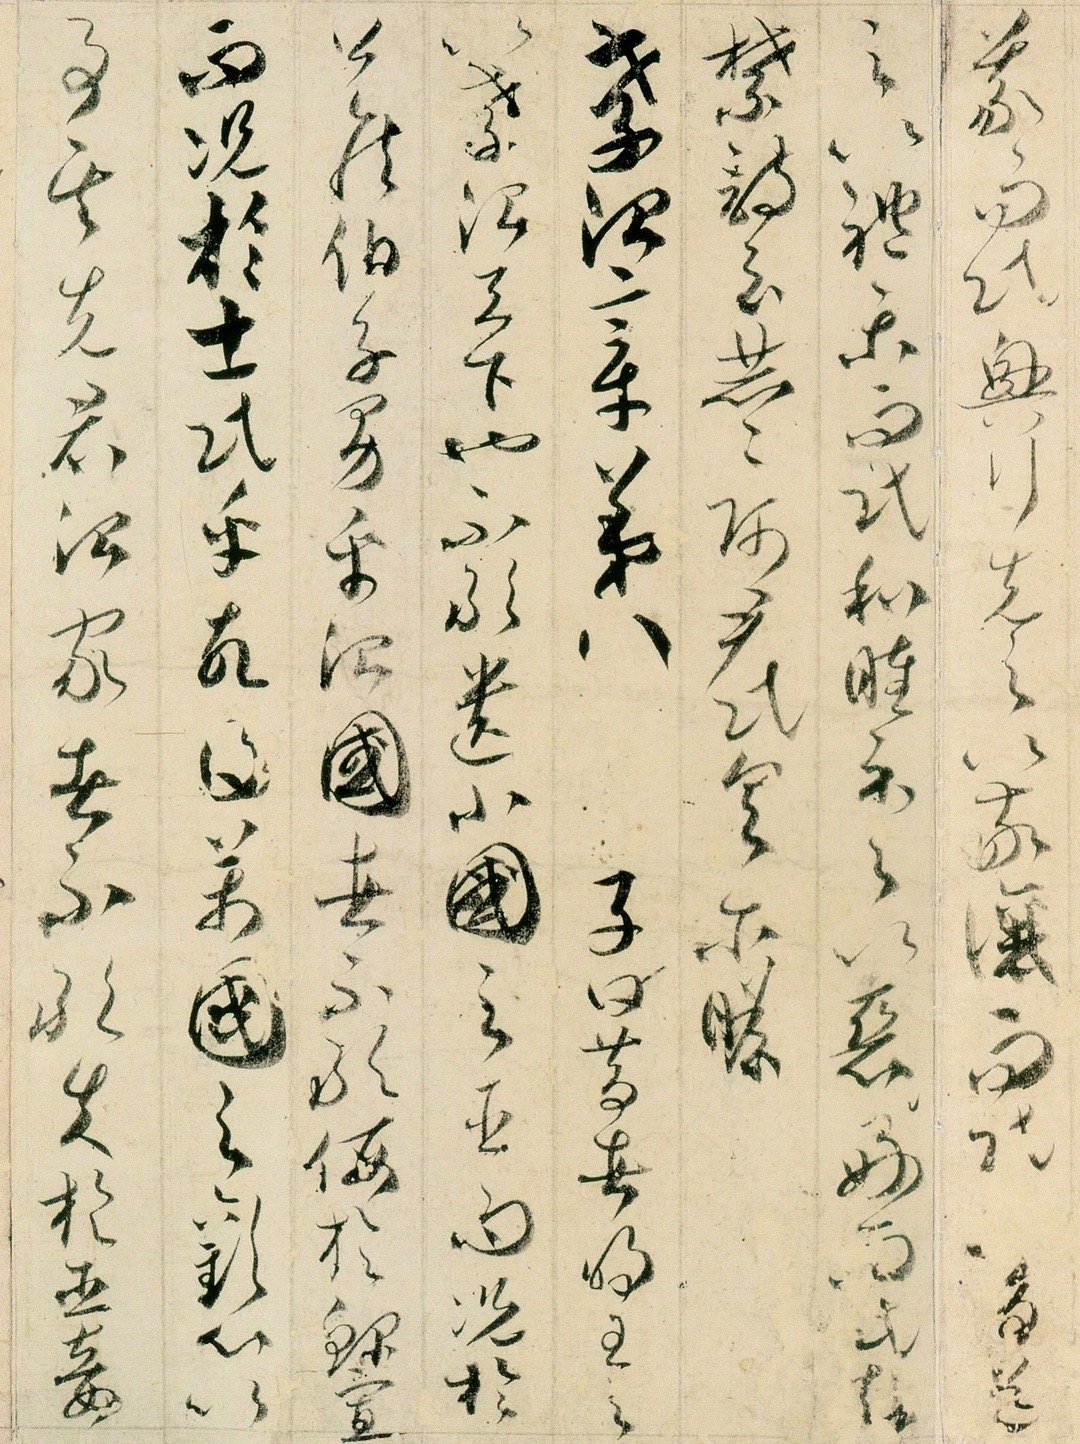 義而民興行先之以敬讓而民導
之以禮樂而民和睦示之以惡好而民知
禁詩云赫〻師尹民具尔瞻
孝治章第八 子曰昔者明王之
以孝治天下也不敢遺小國之臣而況於
公侯伯子男乎治國者不敢侮於鰥寡
而況於士民乎故得萬國之歡心以
事其先君治家者不敢失於臣妾